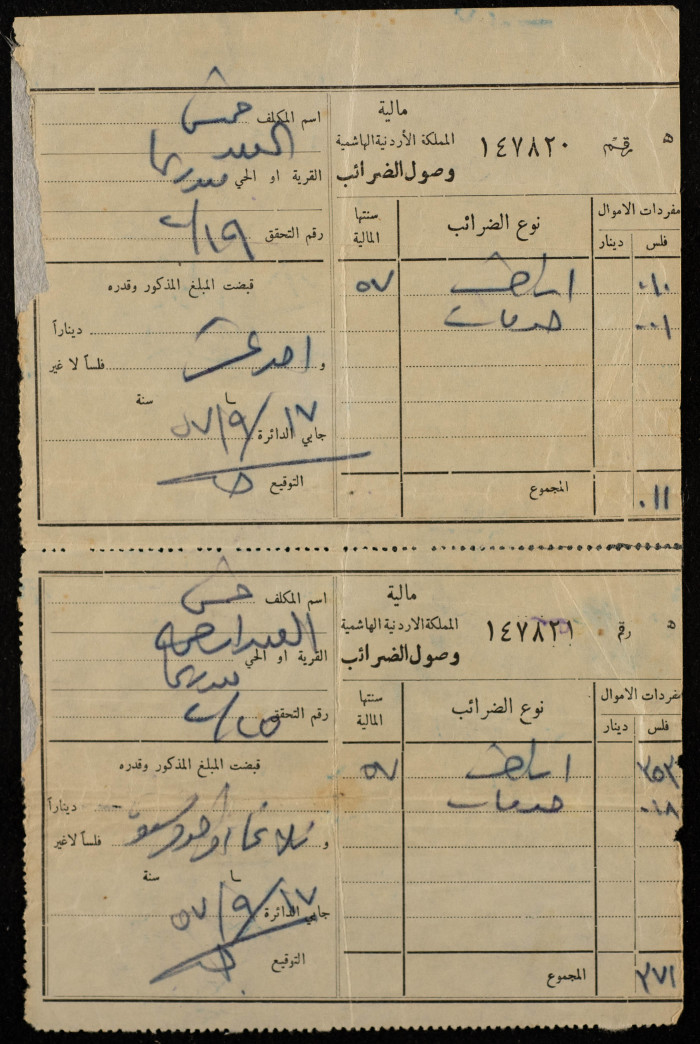 مالية
المملكة الأردنية الهاشمية
وصول الضرائب
ه رقم ١٤٧٨٢٠
اسم المكلف حسن
العبد
القرية او الحي
رقم التحقق ١٩/٢
مفردات الاموال
فلس دينار
نوع الضرائب
سنتها المالية
٠١٠ اراضي ٥٧
٠٠١ خدمات
المجموع
٠١١
قبضت المبلغ المذكور وقدره
ديناراً
و احد عشر فلساً لا غير
سنة
١٧/٩/٥٧
جابي الدائرة
التوقيع
مالية
المملكة الاردنية الهاشمية
وصول الضرائب
ه رقم ١٤٧٨٢١
اسم المكلف حسن
القرية او الحي
رقم التحقق ٢٥/٢
مفردات الاموال
فلس دينار
نوع الضرائب
سنتها المالية
٣٥٣ اراضي ٥٧
٠١٨ خدمات
المجموع
٣٧١
قبضت المبلغ المذكور وقدره
ديناراً
و فلساً لا غير
سنة
١٧/٩/٥٧
جابي الدائرة
التوقيع